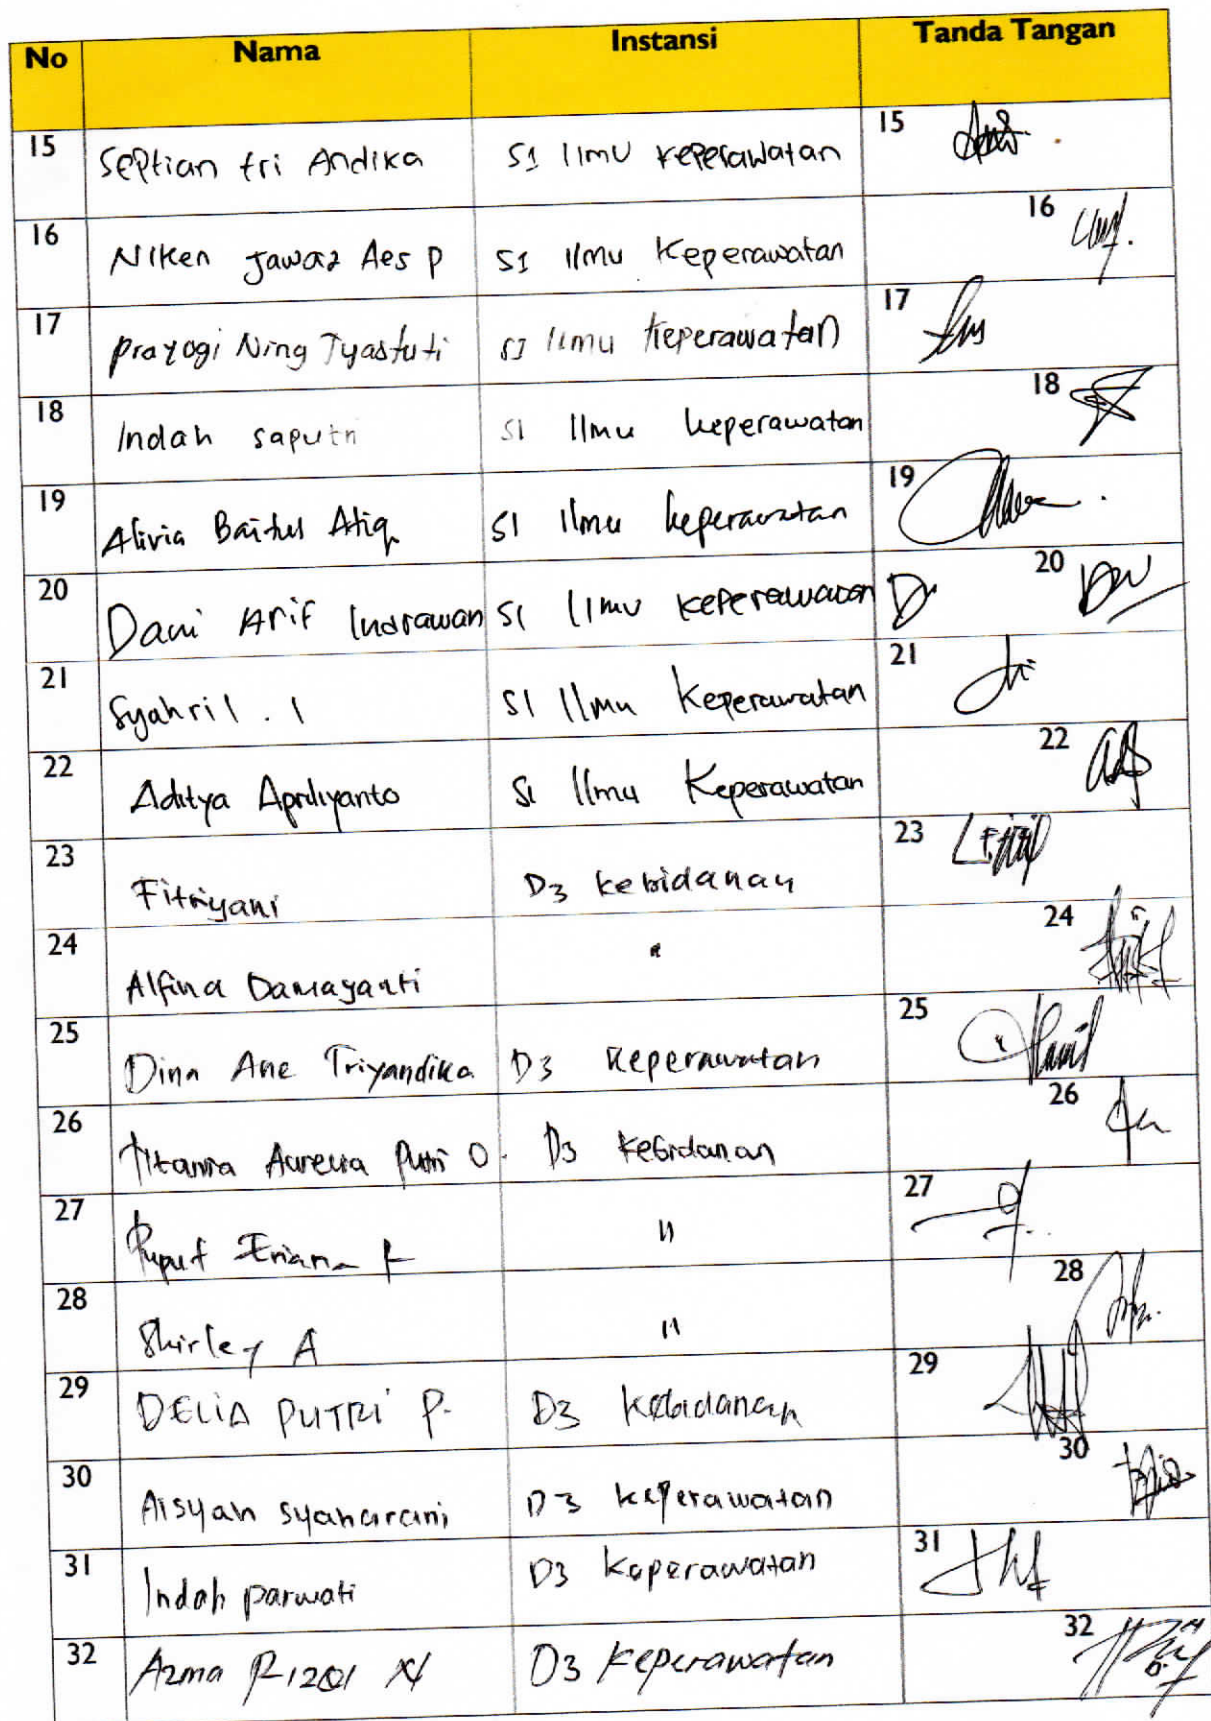 No Nama Instansi Tanda Tangan
15 Septian tri Andika S1 Ilmu Keperawatan 15
16 Niken Jawaz Aes P S1 Ilmu Keperawatan 16
17 Prayogi Ning Tyastuti S1 Ilmu Keperawatan 17
18 Indah saputri S1 Ilmu keperawatan 18
19 Alivia Baitul Atiq S1 Ilmu keperawatan 19
20 Dani Arif Indrawan S1 Ilmu keperawatan 20
21 Syahril . I S1 Ilmu Keperawatan 21
22 Aditya Apriliyanto S1 Ilmu Keperawatan 22
23 Fitriyani D3 kebidanan 23
24 Alfina Damayanti " 24
25 Dina Ane Triyandika D3 Keperawatan 25
26 Titania Aurelia Putri O. D3 Kebidanan 26
27 Puput 27 "
28 Shirley A " 28
29 DELIA PUTRI P. D3 Kebidanan 29
30 Aisyah syaharani D3 keperawatan 30
31 Indah parwati D3 Keperawatan 31
32 Azma D3 Keperawatan 32